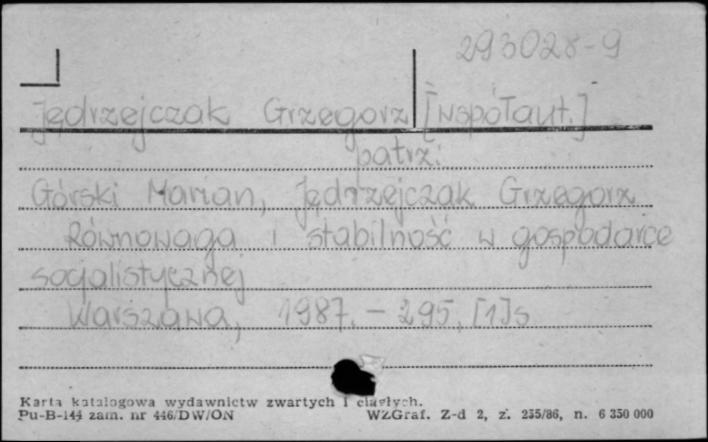 293028-9
Jędrzejczak Grzegorz [współaut.]
patrz:
Górski Marian, Jędrzejczak Grzegorz
Równowaga i stabilność w gospodarce
socjalistycznej
Warszawa, 1987. - 295, [1]s
Karta katalogowa wydawnictw zwartych i ciągłych.
Pu-B-144 zam. nr 446/DW/ON WZGraf. Z-d 2, z. 235/86, n. 6 350 000